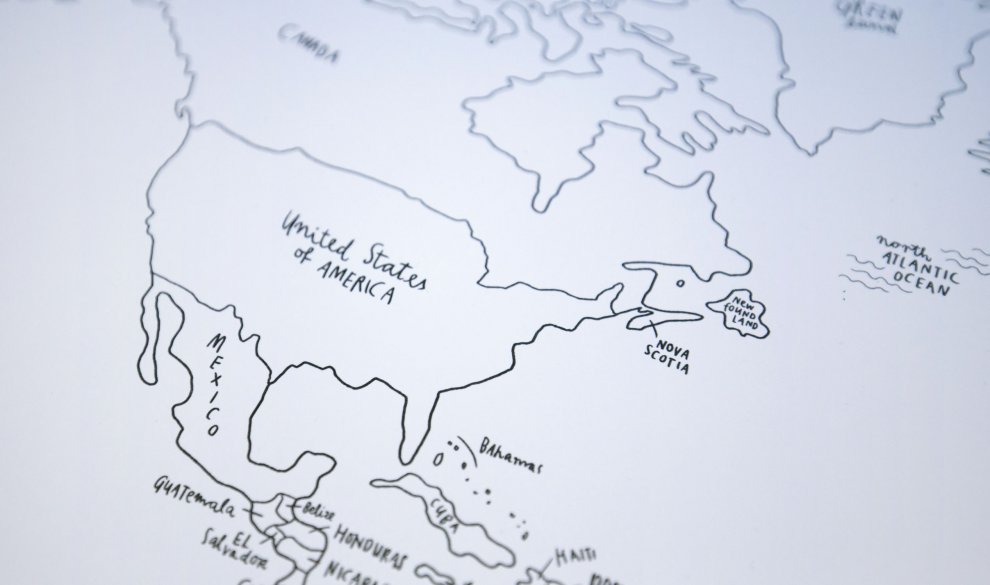 GREEN
LAND
CANADA
United States
of AMERICA
north
ATLANTIC
OCEAN
NEW
FOUND
LAND
NOVA
SCOTIA
MEXICO
BAhamas
CUBA
GUATemala
Belize
EL
Salvador
HONDURAS
HAITI